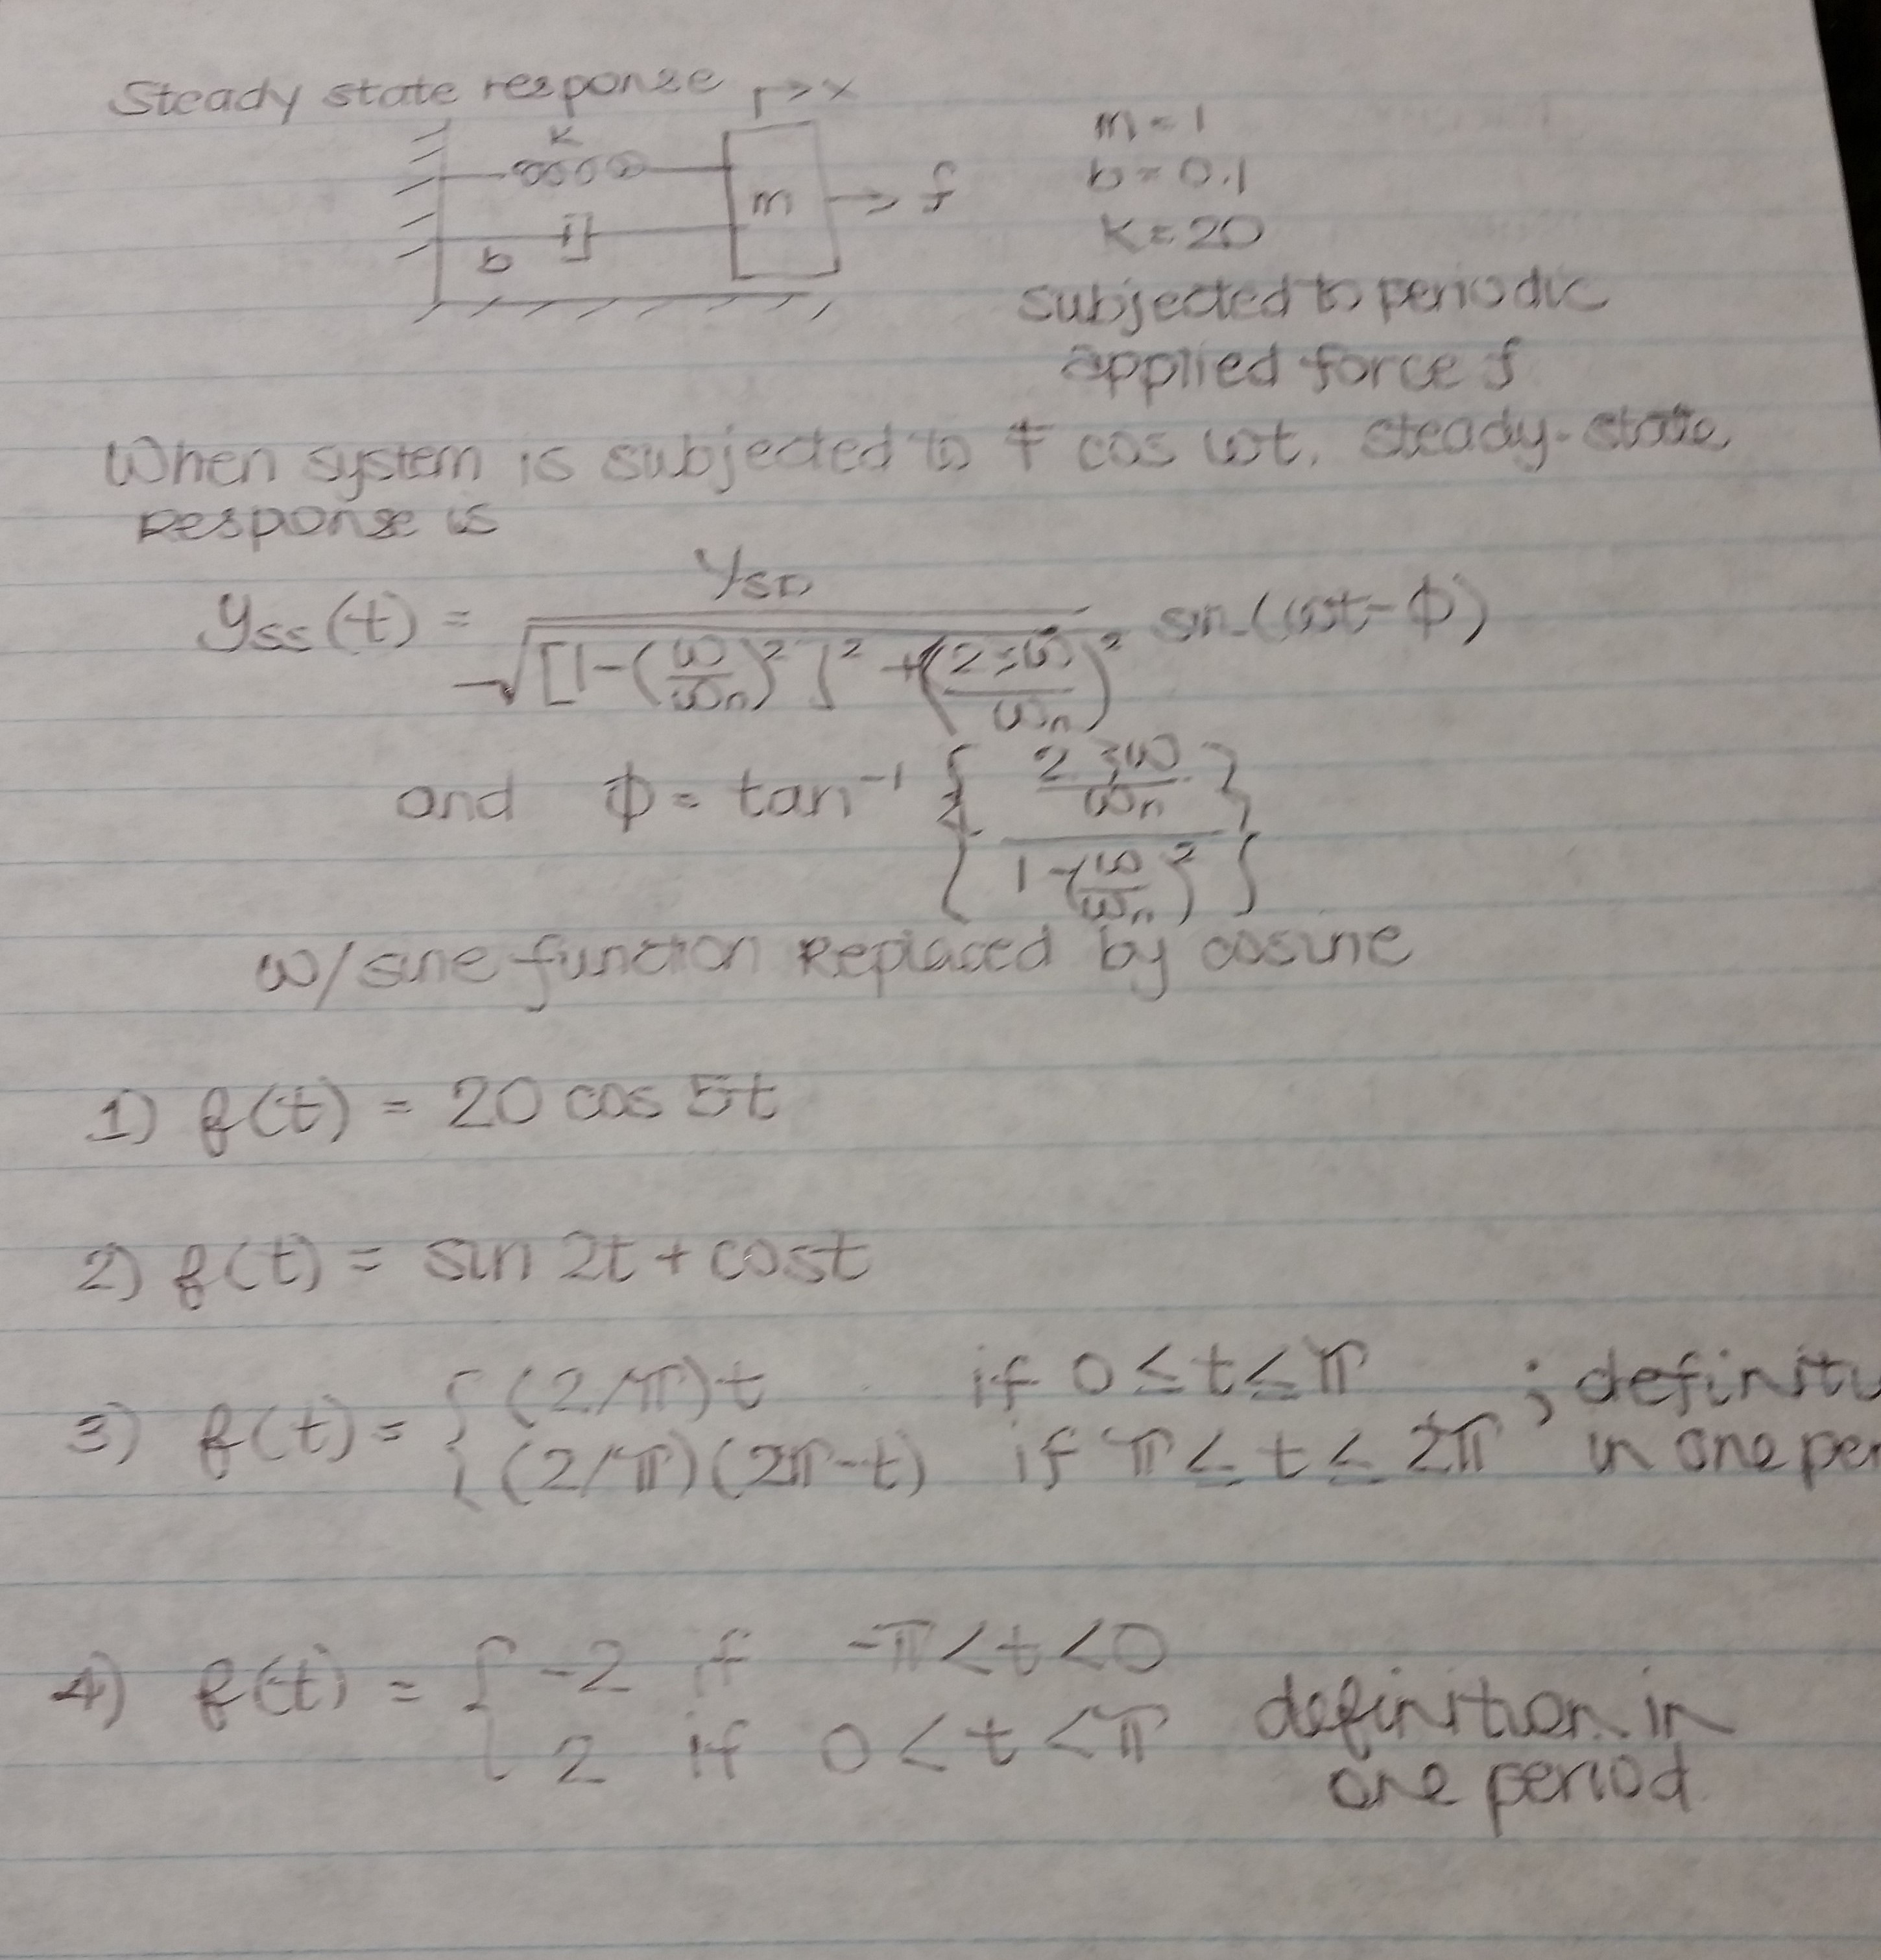 Steady state response
→ x
k
m
→ f
b
m = 1
b = 0.1
k = 20
subjected to periodic
applied force f
When system is subjected to F cos ωt, steady-state
Response is
yss(t) = YSD / √([1-(ω/ωn)²]² + (2ζω/ωn)²) sin(ωt-ϕ)
and ϕ = tan⁻¹ { (2ζω/ωn) / (1-(ω/ωn)²) }
w/ sine function Replaced by cosine
1) f(t) = 20 cos 5t
2) f(t) = sin 2t + cost
3) f(t) = { (2/π)t if 0 ≤ t ≤ π ; definiti
(2/π)(2π-t) if π ≤ t ≤ 2π in one per
4) f(t) = { -2 if -π < t < 0
2 if 0 < t < π definition in
one period